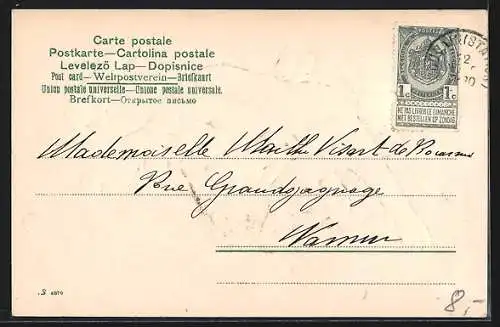 Carte postale
Postkarte—Cartolina postale
Levelező Lap—Dopisnice
Post card—Weltpostverein—Briefkaart
Union postale universelle.—Unione postale universale.
Brefkort—Открытое письмо
1c 1c
NE PAS LIVRER LE DIMANCHE
NIET BESTELLEN OP ZONDAG
Mademoiselle Marthe Visart de
Rue Grandgagnage
Namur
8,-